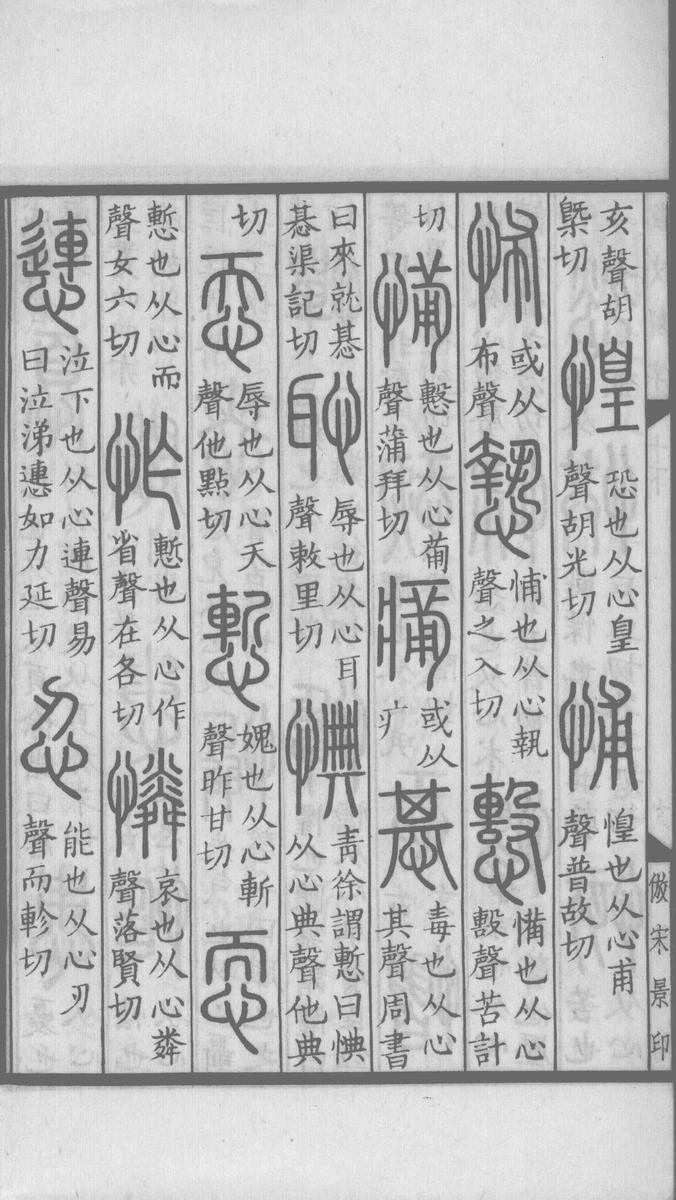 亥聲胡槩切 惶 恐也从心皇聲胡光切 悑 惶也从心甫聲普故切
怖 或从布聲 慹 悑也从心執聲之入切 也从心毄聲苦計
切 也从心𤰈聲蒲拜切 或从疒 惎 毒也从心其聲周書
曰來就惎惎渠記切 恥 辱也从心耳聲敕里切 㥏 青徐謂慙曰㥏从心典聲他典
切 忝 辱也从心天聲他點切 慙 媿也从心斬聲昨甘切 恧
慙也从心而聲女六切 怍 慙也从心作省聲在各切 憐 哀也从心粦聲落賢切
㦁 泣下也从心連聲易曰泣涕㦁如力延切 忍 能也从心刃聲而軫切
倣宋景印